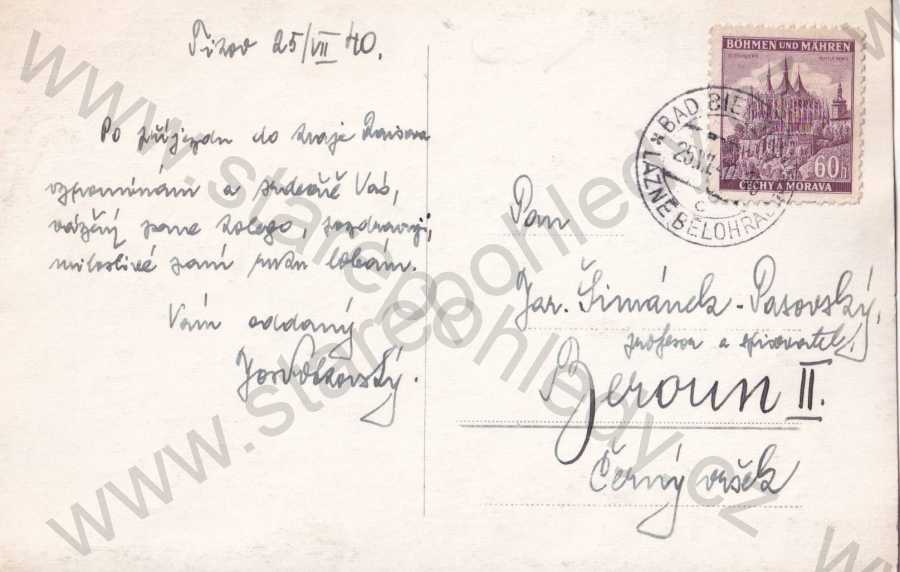 25/VII 40.
Po příjezdu do kraje Raisova
vzpomínám a srdečně Vás,
vážený pane kolego, pozdravuji,
milostivé paní ruku líbám.
Vám oddaný
BÖHMEN UND MÄHREN
60h
ČECHY A MORAVA
BAD
LÁZNĚ BĚLOHRAD
Pan
Jar. Šimánek-Pasovský,
profesor a spisovatel,
Beroun II.
Černý vršek
www.starepohledy.cz